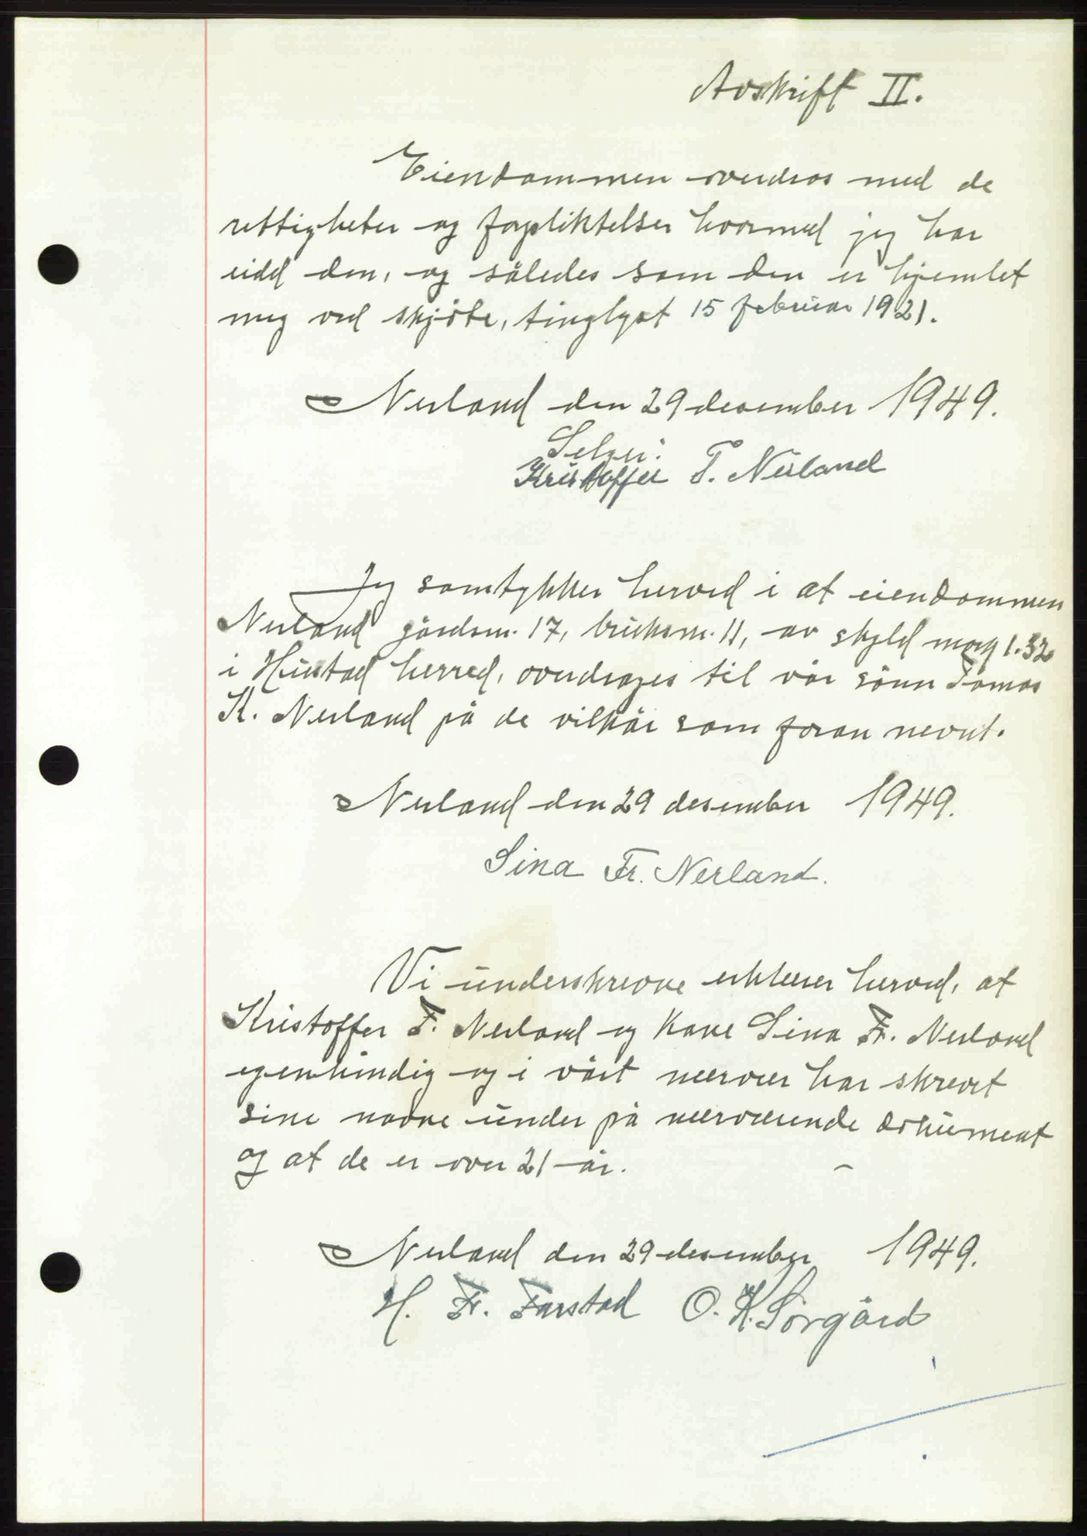 Avskrift II.
Eiendommen overdras med de
rettigheter og forpliktelser hvormed jeg har
eidd den, og således som den er hjemlet
meg ved skjöte, tinglyst 15 februar 1921.
Nerland den 29 desember 1949.
Selger:
Kristoffer T. Nerland
Jeg samtykker herved i at eiendommen
Nerland gårdsnr. 17, bruksnr. 11, av skyld mark 1.32
i Hustad herred, overdrages til vår sönn Tomas
K. Nerland på de vilkår som foran nevnt.
Nerland den 29 desember 1949.
Sina Fr. Nerland.
Vi underskrevne erklærer herved, at
Kristoffer T. Nerland og kone Sina Fr. Nerland
egenhendig og i vårt nærvær har skrevet
sine navne under på nærværende dokument
og at de er over 21 år.
Nerland den 29 desember 1949.
H. Fr. Farstad O. K. Sörgård